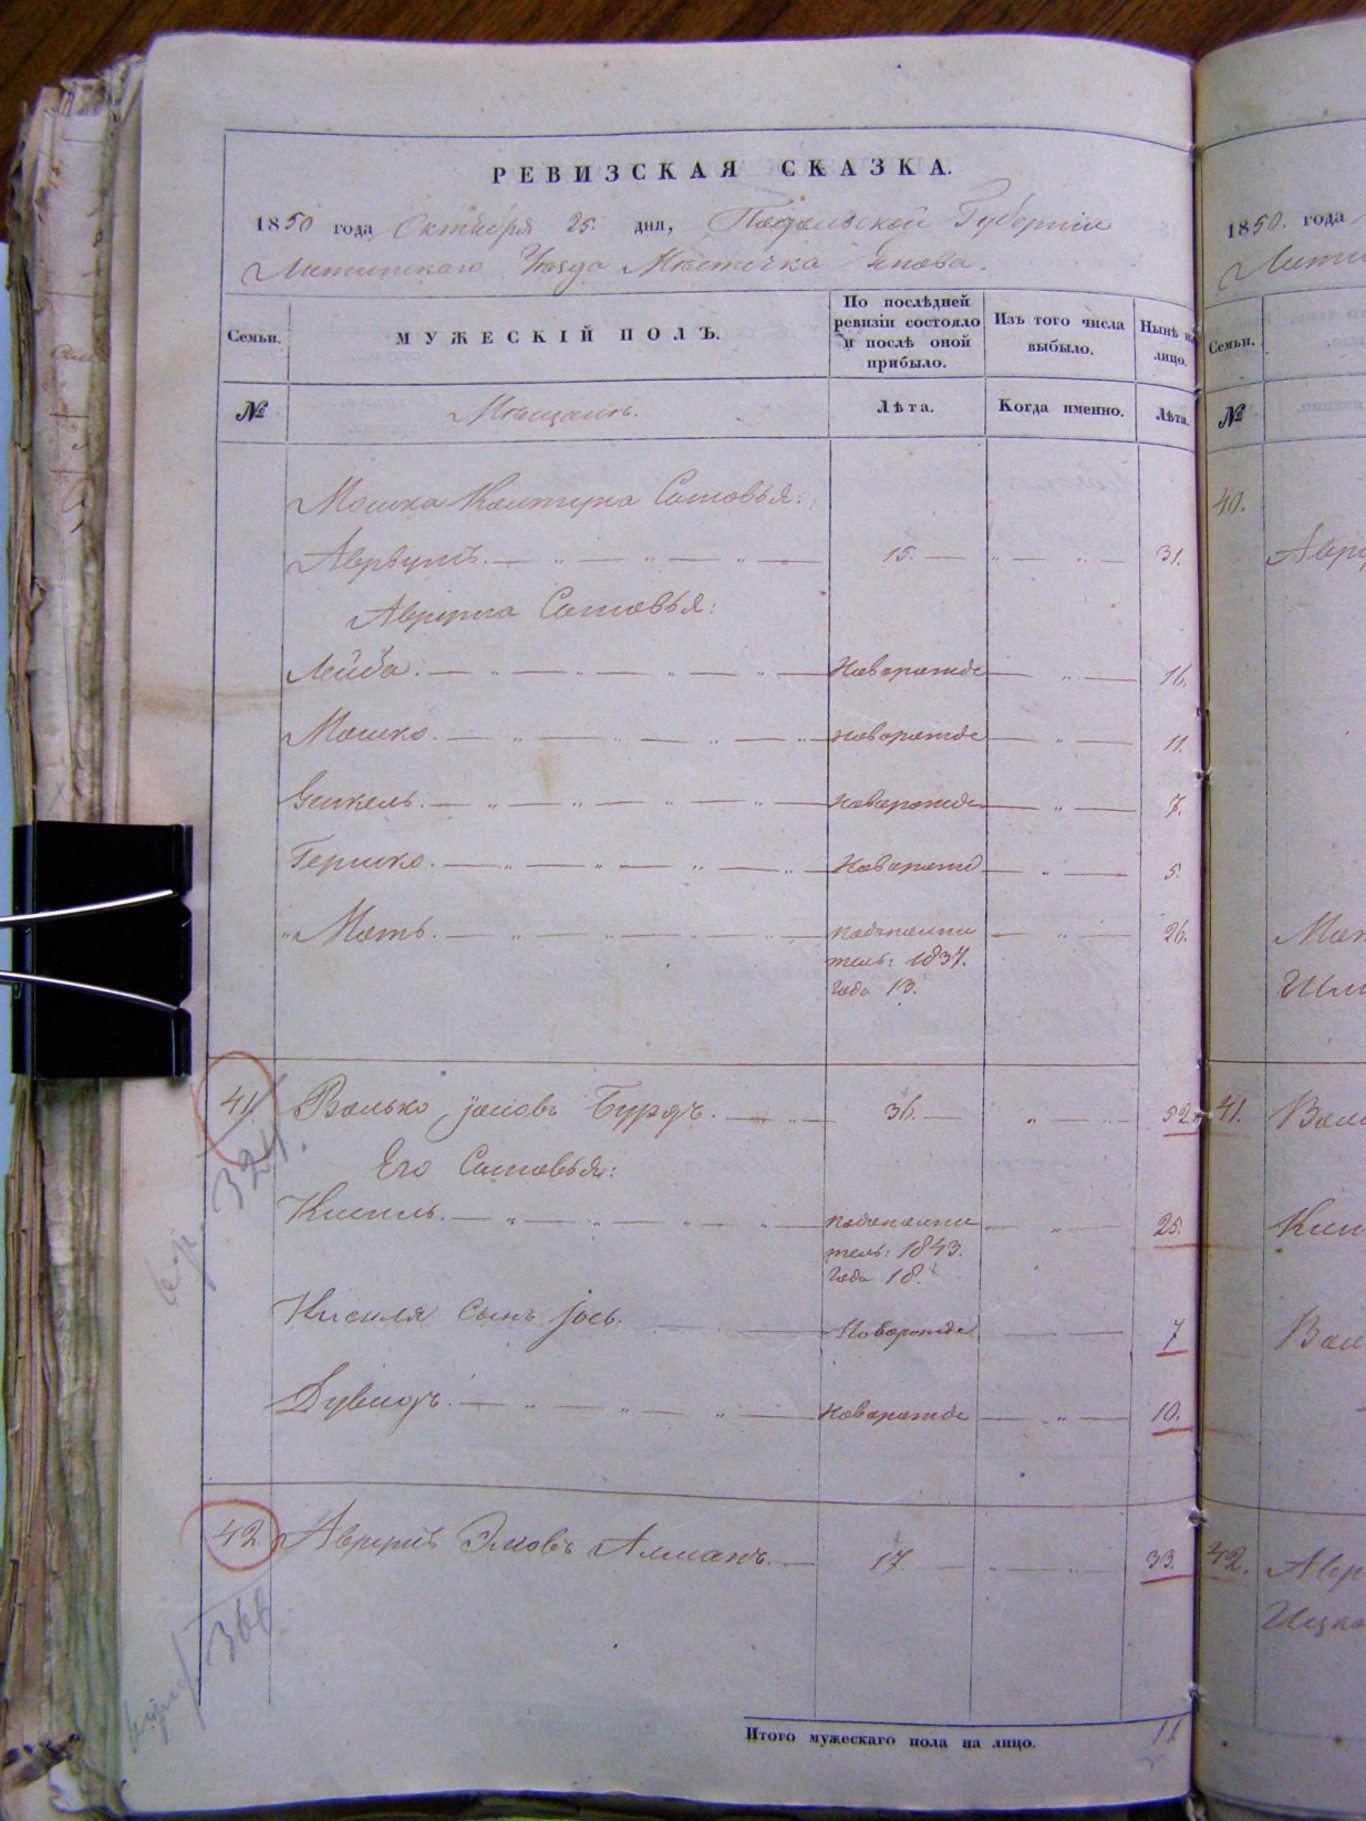 РЕВИЗСКАЯ СКАЗКА.
1850 года Октября 25 дня, Подольской Губернiи
Литинскаго Уѣзда Мѣстечка Янова.
Семьи.
МУЖЕСКIЙ ПОЛЪ.
По послѣдней ревизiи состояло и послѣ оной прибыло.
Изъ того числа выбыло.
Нынѣ на лицо.
№
Мѣщанъ.
Лѣта.
Когда именно.
Лѣта.
Мошка Сыновья:
Аврумъ. 15. 31.
Аврума Сыновья:
Лейба. Новорожде 16.
Мошко. новорожде 11.
Янкель. новорожде 7.
Гершко. Новорожд 5.
Моть. 26.
тель: 1837.
Года 13.
41. Волько Бурдъ. 36. 52.
Его Сыновья:
Кисиль. 25.
тель: 1843.
Года 18.
Кисиля Сынъ Iось. Новорожде 7
Дувидъ. Новорожде 10.
324.
42. Аврумъ 17. 33.
366
Итого мужескаго пола на лицо. 11
1850. года
Семьи.
№
40.
41.
42.